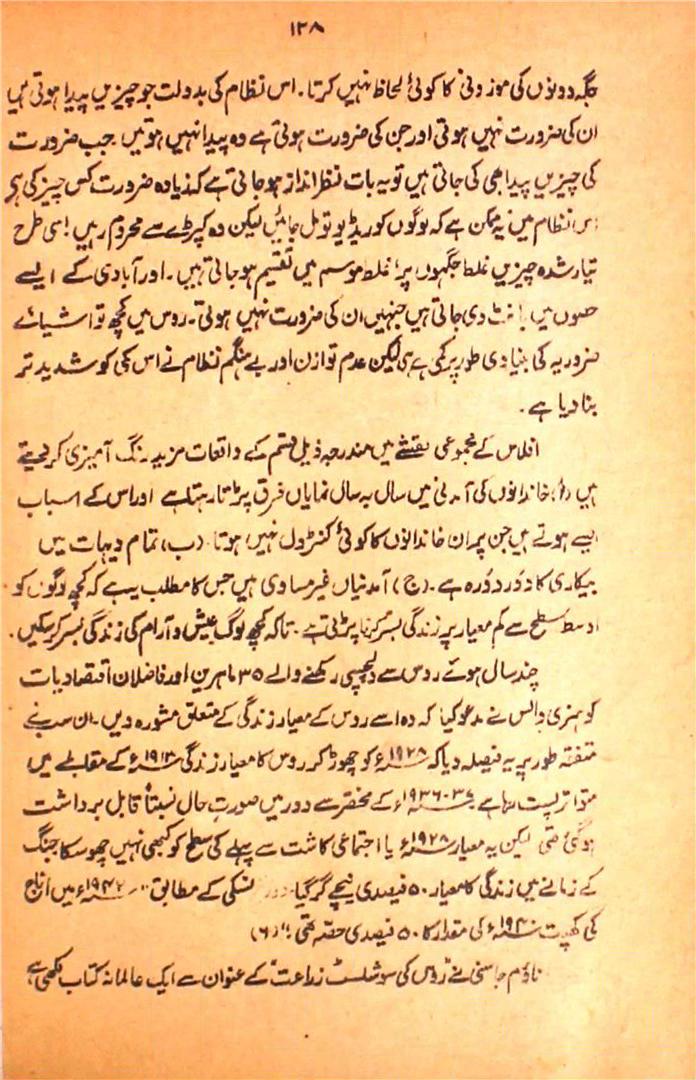 ۱۳۸
جگہ دونوں کی موزونی کا کوئی لحاظ نہیں کرتا۔ اس نظام کی بدولت جو چیزیں پیدا ہوتی ہیں
ان کی ضرورت نہیں ہوتی اور جن کی ضرورت ہوتی ہے وہ پیدا نہیں ہوتیں جب ضرورت
کی چیزیں پیدا بھی کی جاتی ہیں تو یہ بات نظر انداز ہو جاتی ہے کہ زیادہ ضرورت کس چیز کی ہے
اس نظام میں یہ ممکن ہے کہ لوگوں کو ریڈیو تو مل جائیں لیکن وہ کپڑے سے محروم رہیں! اسی طرح
تیار شدہ چیزیں غلط جگہوں پر، غلط موسم میں تقسیم ہو جاتی ہیں۔ اور آبادی کے ایسے
حصوں میں بانٹ دی جاتی ہیں جنہیں ان کی ضرورت نہیں ہوتی۔ روس میں کچھ تو اشیائے
ضروریہ کی بنیادی طور پر کمی ہے ہی لیکن عدم توازن اور بے ہنگم نظام نے اس کمی کو شدید تر
بنا دیا ہے۔
افلاس کے مجموعی نقشے میں مندرجہ ذیل قسم کے واقعات مزید رنگ آمیزی کر دیتے
ہیں (ا) خاندانوں کی آمدنی میں سال بہ سال نمایاں فرق پڑتا رہتا ہے اور اس کے اسباب
ایسے ہوتے ہیں جن پر ان خاندانوں کا کوئی کنٹرول نہیں ہوتا (ب) تمام دیہات میں
بیکاری کا دور دورہ ہے۔ (ج) آمدنیاں غیر مساوی ہیں جس کا مطلب یہ ہے کہ کچھ لوگوں کو
اوسط سطح سے کم معیار پر زندگی بسر کرنا پڑتی ہے۔ تاکہ کچھ لوگ عیش و آرام کی زندگی بسر کر سکیں۔
چند سال ہوئے روس سے دلچسپی رکھنے والے ۳۵ ماہرین اور فاضلان اقتصادیات
کو ہنری والس نے مدعو کیا کہ وہ اسے روس کے معیار زندگی کے متعلق مشورہ دیں۔ ان سب نے
متفقہ طور پر یہ فیصلہ دیا کہ ۱۹۲۸ء کو چھوڑ کر روس کا معیار زندگی ۱۹۱۳ء کے مقابلے میں
متواتر پست رہا ہے ۳۷-۱۹۳۶ء کے مختصر سے دور میں صورت حال نسبتاً قابل برداشت
ہو گئی تھی لیکن یہ معیار ۱۹۲۸ء یا اجتماعی کاشت سے پہلے کی سطح کو کبھی نہیں چھو سکا جنگ
کے زمانے میں زندگی کا معیار ۵۰ فیصدی نیچے گر گیا کے مطابق "۱۹۴۲ء میں اناج
کی کھپت ۱۹۴۰ء کی مقدار کا ۵۰ فیصدی حصہ تھی" (۶)
ناؤم جاسنی نے "روس کی سوشلسٹ زراعت" کے عنوان سے ایک عالمانہ کتاب لکھی ہے